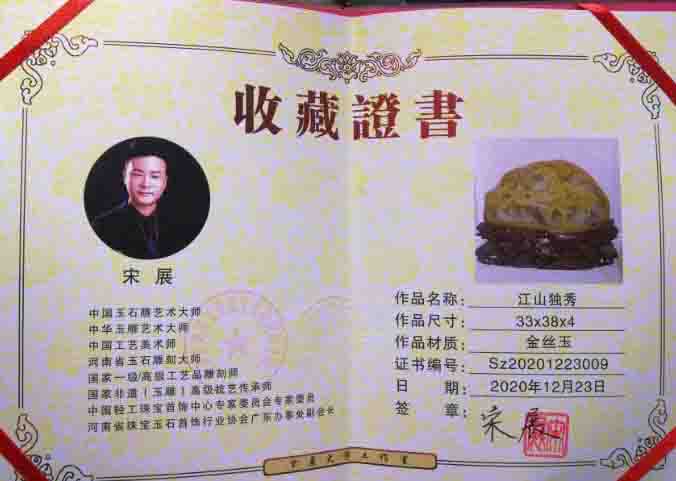 收藏證書
宋 展
中国玉石雕艺术大师
中华玉雕艺术大师
中国工艺美术师
河南省玉石雕刻大师
国家一级/高级工艺品雕刻师
国家非遗（玉雕）高级技艺传承师
中国轻工珠宝首饰中心专家委员会专家委员
河南省珠宝玉石首饰行业协会广东办事处副会长
作品名称： 江山独秀
作品尺寸： 33x38x4
作品材质： 金丝玉
证书编号： Sz20201223009
日 期： 2020年12月23日
签 章： 宋展